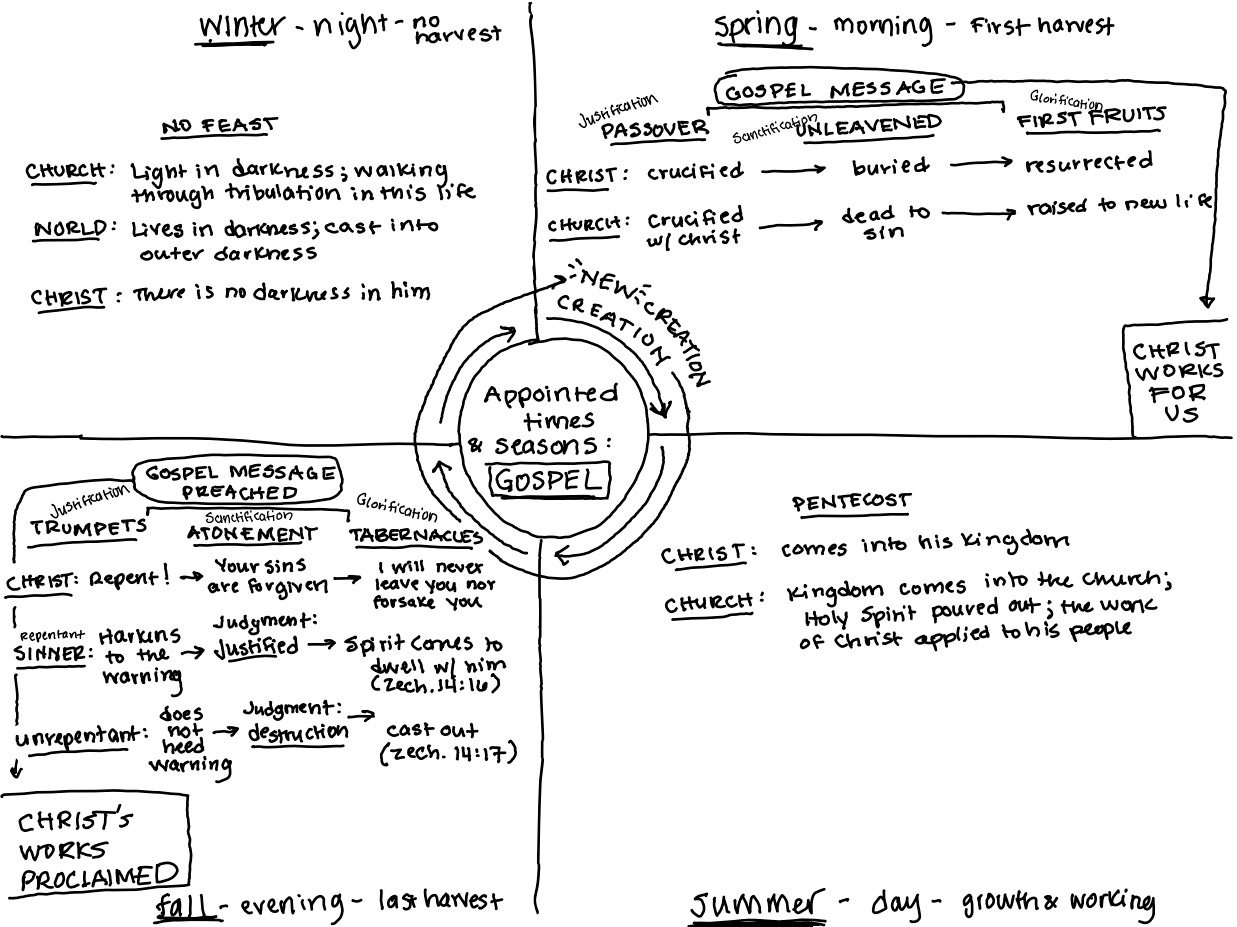 Winter - night - no harvest
NO FEAST
CHURCH: Light in darkness; walking
through tribulation in this life
WORLD: Lives in darkness; cast into
outer darkness
CHRIST: There is no darkness in him
spring - morning - First harvest
GOSPEL MESSAGE
Justification
PASSOVER
Sanctification
UNLEAVENED
Glorification
FIRST FRUITS
CHRIST: crucified → buried → resurrected
CHURCH: Crucified w/ christ → dead to sin → raised to new life
CHRIST
WORKS
FOR
US
NEW CREATION
CREATION
Appointed
times
& seasons:
GOSPEL
GOSPEL MESSAGE
PREACHED
Justification
TRUMPETS
Sanctification
ATONEMENT
Glorification
TABERNACLES
CHRIST: Repent! → Your sins are forgiven → I will never leave you nor forsake you
Repentant
SINNER: Harkins to the warning → Judgment: Justified → Spirit comes to dwell w/ him (Zech. 14:16)
unrepentant: does not heed warning → Judgment: destruction → cast out (Zech. 14:17)
CHRIST'S
WORKS
PROCLAIMED
fall - evening - last harvest
PENTECOST
CHRIST: comes into his kingdom
CHURCH: Kingdom comes into the church;
Holy Spirit poured out; the work
of Christ applied to his people
summer - day - growth & working